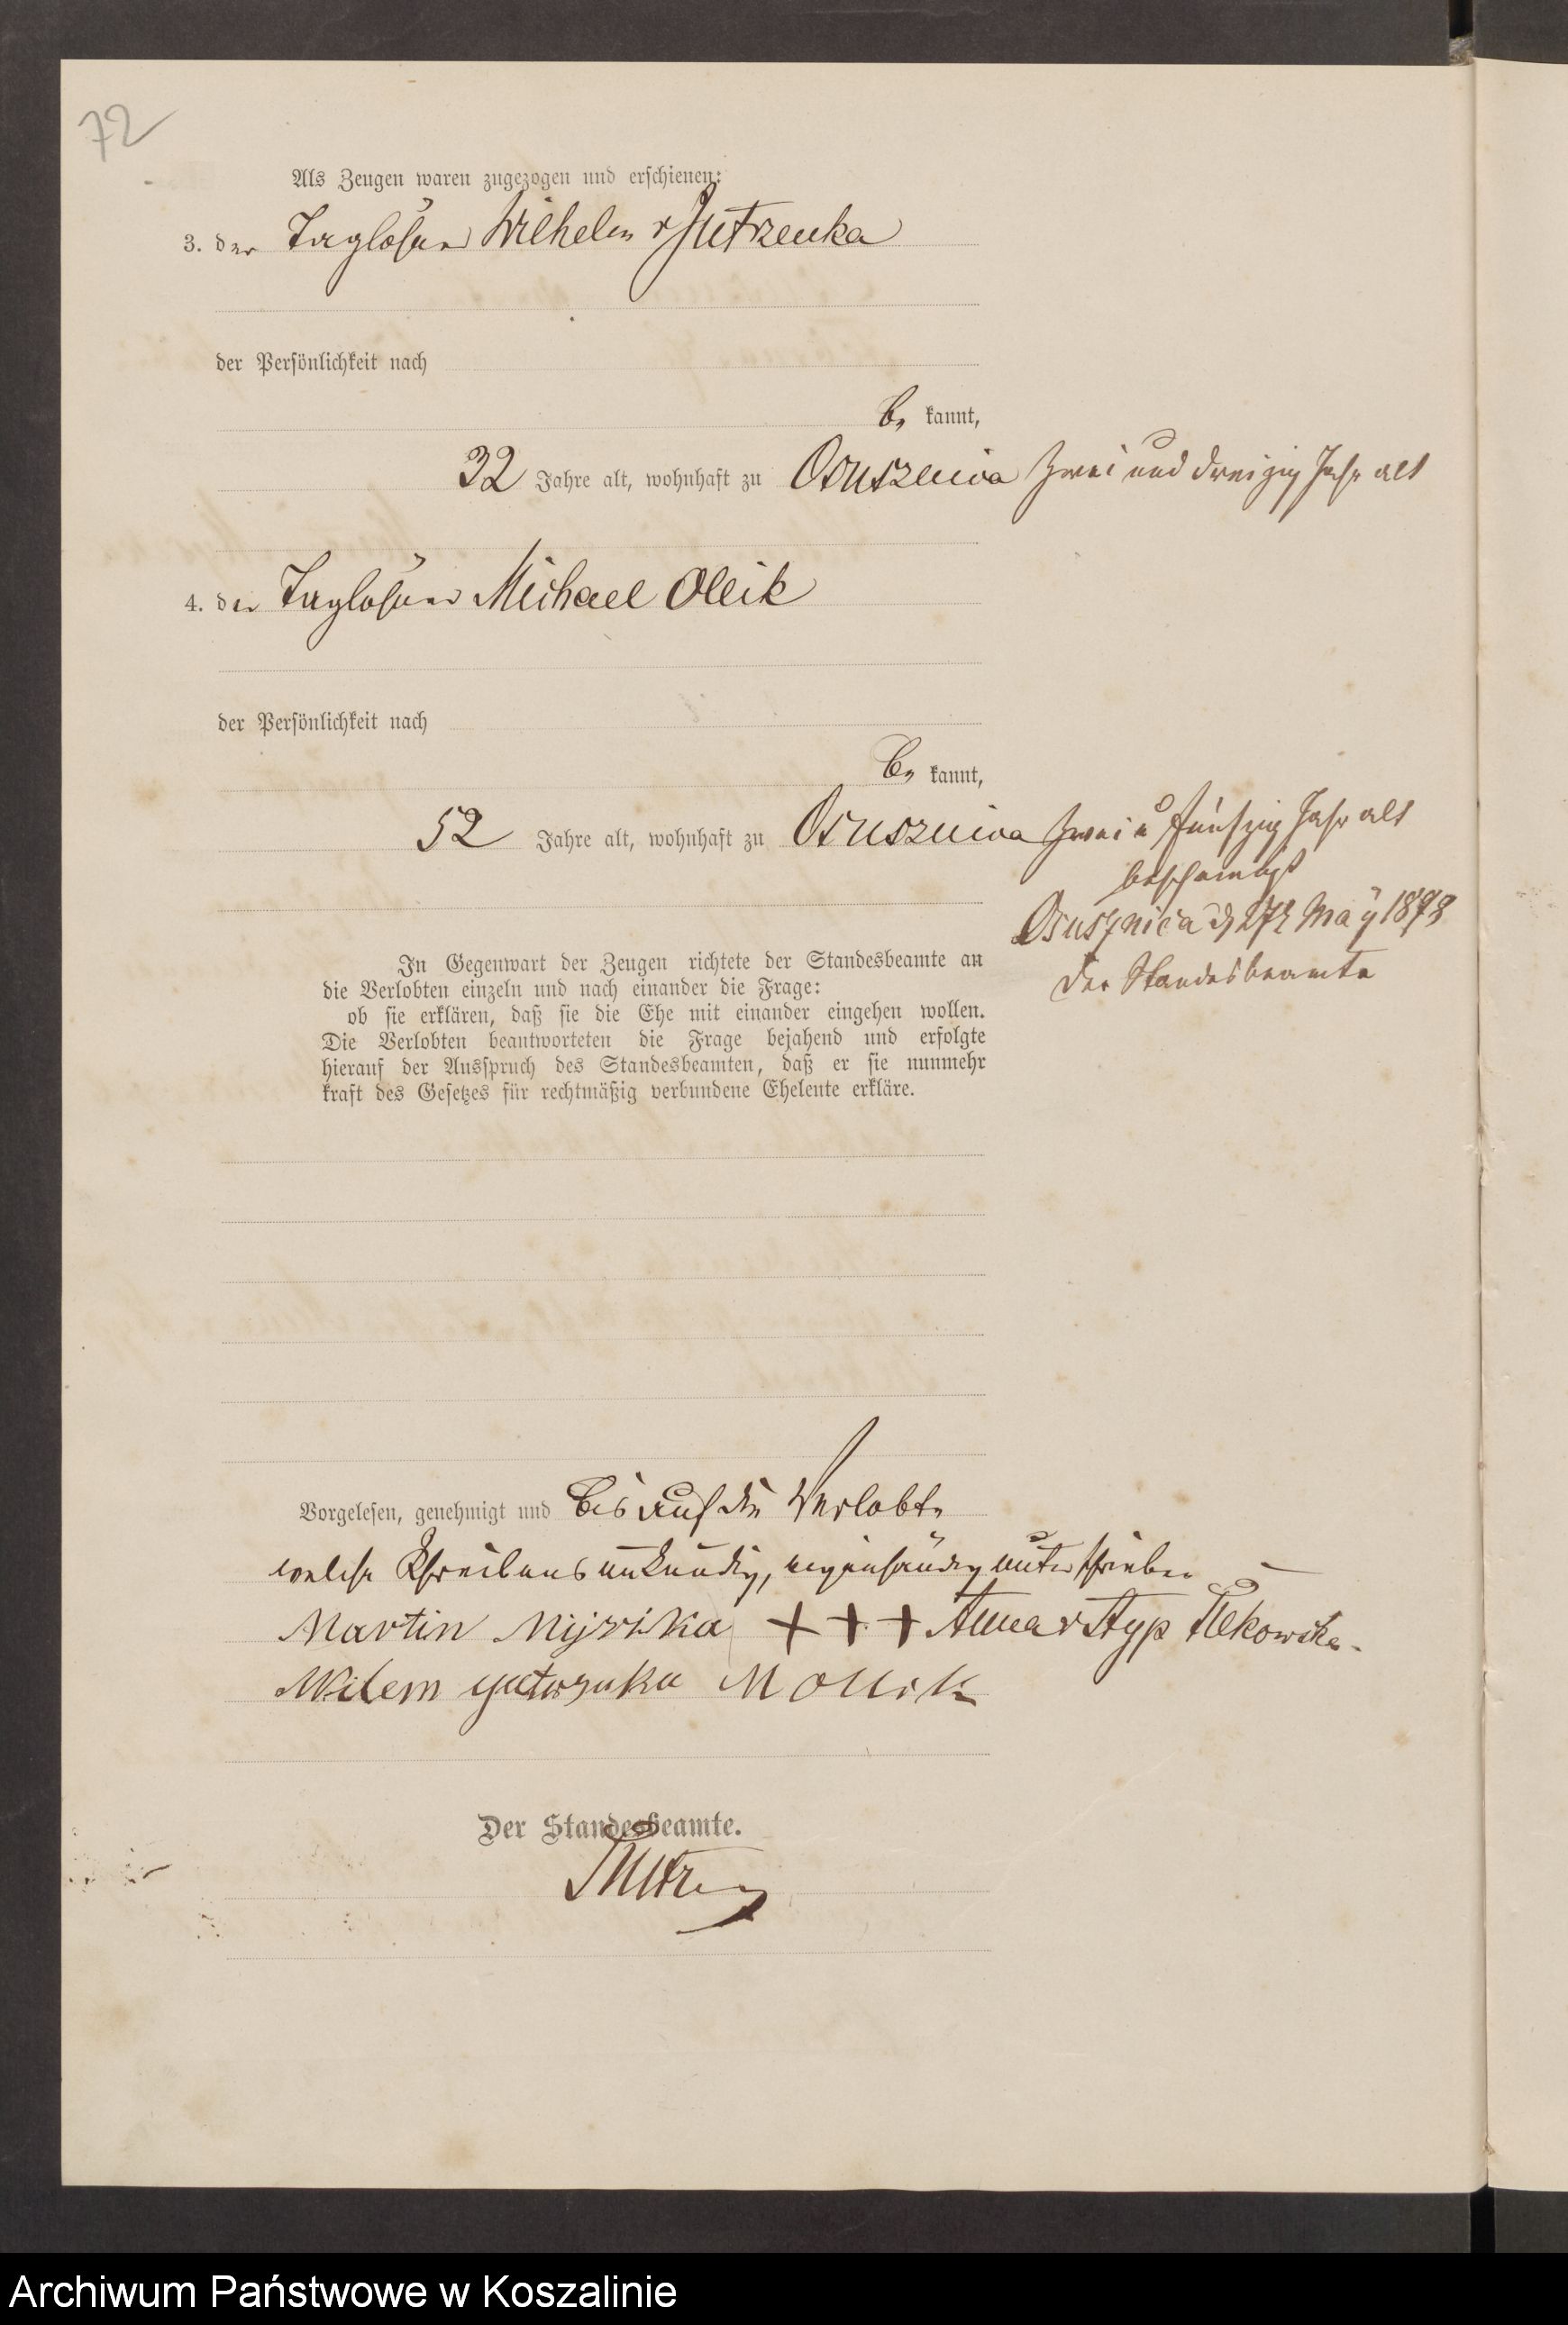 72
Als Zeugen waren zugezogen und erschienen:
3. der Taglöhner Wilhelm v Jutrzenka
der Persönlichkeit nach
be kannt,
32 Jahre alt, wohnhaft zu Ossusznica Zwei und dreizig Jahr alt
4. der Taglöhner Michael Ollik
der Persönlichkeit nach
be kannt,
52 Jahre alt, wohnhaft zu Ossusznica Zwei u fünfzig Jahr alt
bescheinigt
Osusznica d 27t May 1878
Der Standesbeamte
In Gegenwart der Zeugen richtete der Standesbeamte an
die Verlobten einzeln und nach einander die Frage:
ob sie erklären, daß sie die Ehe mit einander eingehen wollen.
Die Verlobten beantworteten die Frage bejahend und erfolgte
hierauf der Ausspruch des Standesbeamten, daß er sie nunmehr
kraft des Gesetzes für rechtmäßig verbundene Eheleute erkläre.
Vorgelesen, genehmigt und bis auf die Verlobte
welche Schreibens unkundig, eigenhändig unterschrieben
Martin + + + Anna v Styp Rekowska
Wilem M Ollik
Der Standesbeamte.